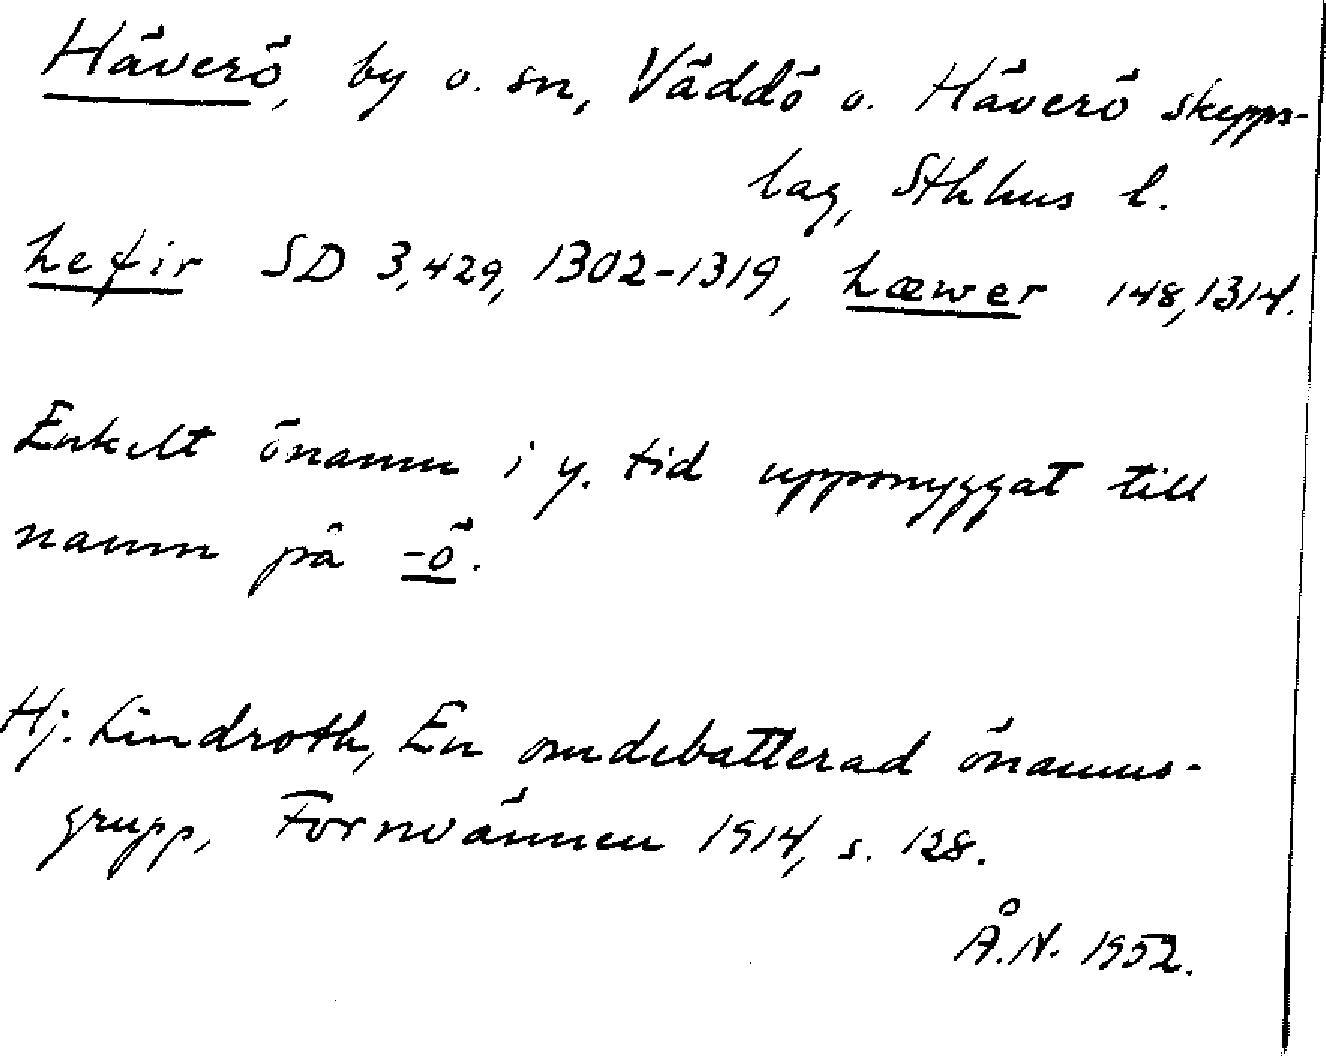 Häverö, by o. sn, Väddö o. Häverö skepps-
lag, Sthlms l.
hefir SD 3,429, 1302-1319, hæwer 148, 1314.
Enkelt önamn i y. tid uppsnyggat till
namn på -ö.
Hj. Lindroth, En omdebatterad önamns-
grupp, Fornvännen 1914, s. 128.
Å.N. 1952.